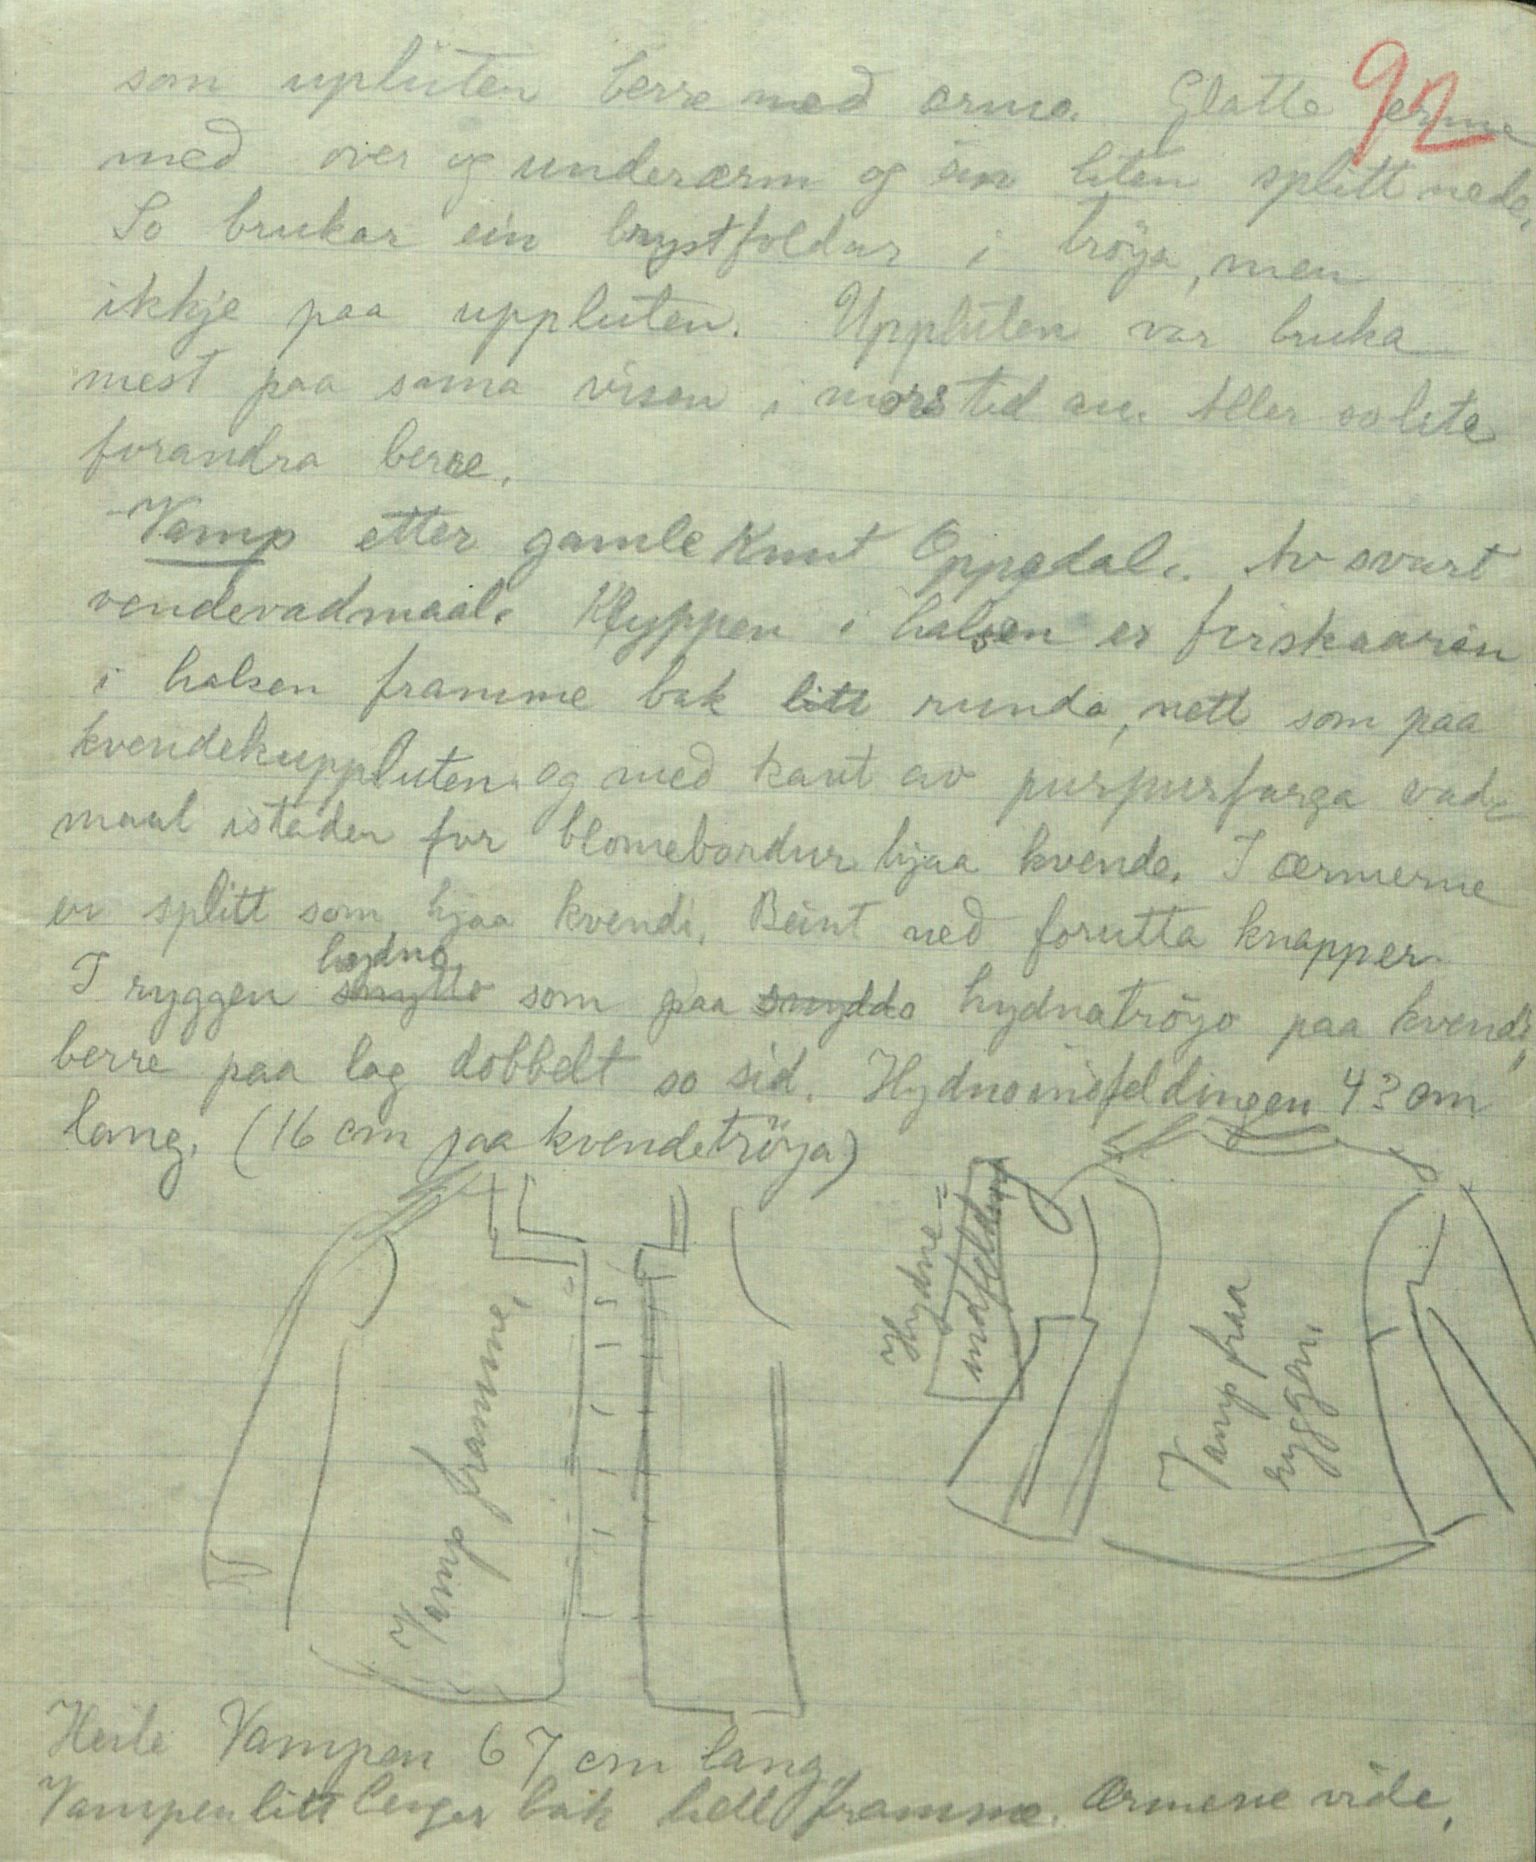 92
som upluten berre med ærma. Glatte erme
med over og underærm og ein liten splitt neder,
So brukar ein brystfoldar i tröya, men
ikkje paa uppluten. Uppluten var bruka
mest paa sama visen i mors tid au. Eller so lite
forandra berre.
Vamp etter gamle Knut Oppedal. Av svart
vendevadmaal. Klyppen i halsen er firskaaren
i halsen framme bak litt runda, nett som paa
kvendekuppluten og med kant av purpurfarga vad=
maal istaden for blomebordur hjaa kvende. I ærmerne
er splitt som hjaa kvendi. Beint ned forutta knapper.
hydno
I ryggen snytto som paa snyddo hydnatröyo paa kvendi,
berre paa lag dobbelt so sid. Hydnoindfeldingen 43 cm
lang. (16 cm paa kvendetröya)
Hydne=
indfelding
Vamp framme.
Vamp fraa
ryggen.
Heile Vampen 67 cm lang.
Vampen litt lenger bak hell framme. Ærmene vide.